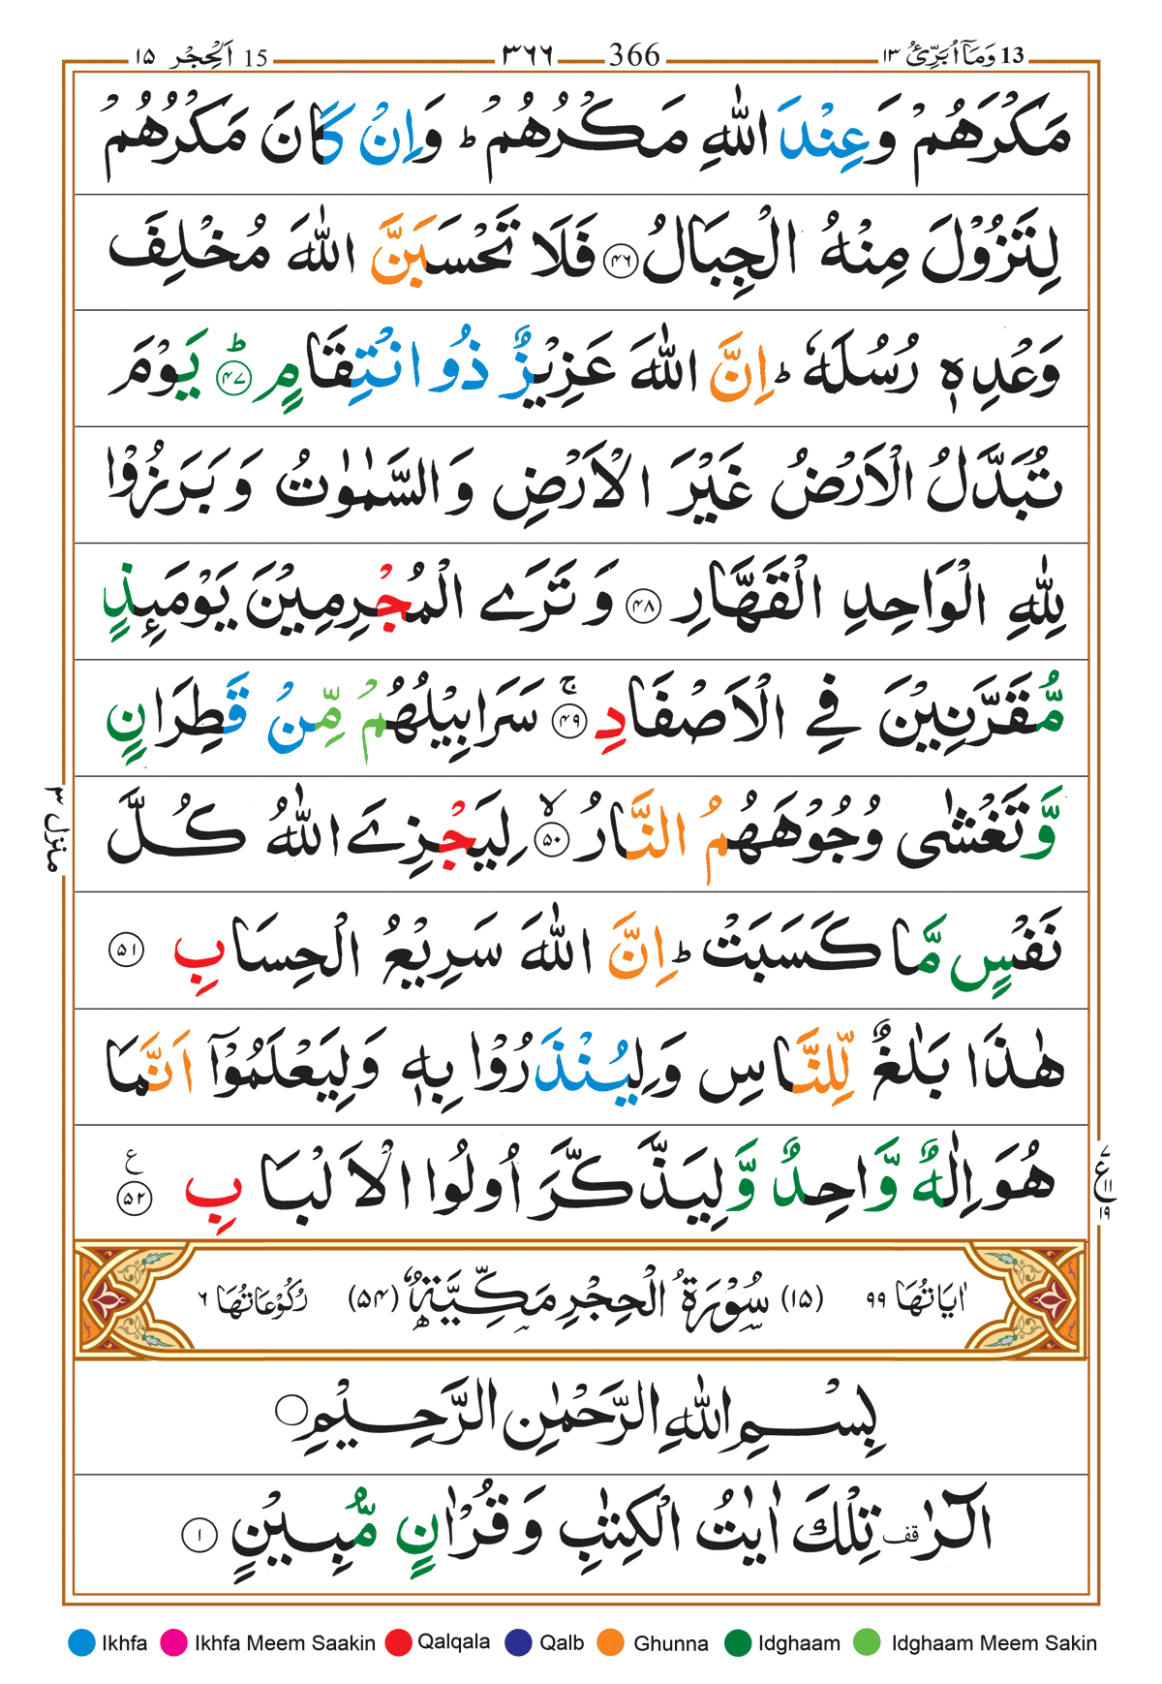 15 اَلْحِجْر ١٥ ٣٦٦ 366 وَمَآ اُبَرِّئُ ١٣ 13
مَكْرَهُمْ وَعِنْدَ اللّٰهِ مَكْرُهُمْ ؕ وَاِنْ كَانَ مَكْرُهُمْ
لِتَزُوْلَ مِنْهُ الْجِبَالُ ﴿۴۶﴾ فَلَا تَحْسَبَنَّ اللّٰهَ مُخْلِفَ
وَعْدِهٖ رُسُلَهٗ ؕ اِنَّ اللّٰهَ عَزِيْزٌ ذُو انْتِقَامٍ ؕ﴿۴۷﴾ يَوْمَ
تُبَدَّلُ الْاَرْضُ غَيْرَ الْاَرْضِ وَالسَّمٰوٰتُ وَبَرَزُوْا
لِلّٰهِ الْوَاحِدِ الْقَهَّارِ ﴿۴۸﴾ وَتَرَى الْمُجْرِمِيْنَ يَوْمَئِذٍ
مُّقَرَّنِيْنَ فِي الْاَصْفَادِ ۚ﴿۴۹﴾ سَرَابِيْلُهُمْ مِّنْ قَطِرَانٍ
وَّتَغْشٰى وُجُوْهَهُمُ النَّارُ ۙ﴿۵۰﴾ لِيَجْزِيَ اللّٰهُ كُلَّ
نَفْسٍ مَّا كَسَبَتْ ؕ اِنَّ اللّٰهَ سَرِيْعُ الْحِسَابِ ﴿۵۱﴾
هٰذَا بَلٰغٌ لِّلنَّاسِ وَلِيُنْذَرُوْا بِهٖ وَلِيَعْلَمُوْٓا اَنَّمَا
هُوَ اِلٰهٌ وَّاحِدٌ وَّلِيَذَّكَّرَ اُولُوا الْاَلْبَابِ ع ﴿۵۲﴾
٧ ع ١١ ١٩
منزل ٣
اٰيَاتُهَا ٩٩ (١۵) سُوْرَةُ الْحِجْرِ مَكِّيَّةٌ (۵۴) رُكُوْعَاتُهَا ٦
بِسْمِ اللّٰهِ الرَّحْمٰنِ الرَّحِيْمِ
الٓرٰ قف تِلْكَ اٰيٰتُ الْكِتٰبِ وَقُرْاٰنٍ مُّبِيْنٍ ﴿۱﴾
Ikhfa Ikhfa Meem Saakin Qalqala Qalb Ghunna Idghaam Idghaam Meem Sakin